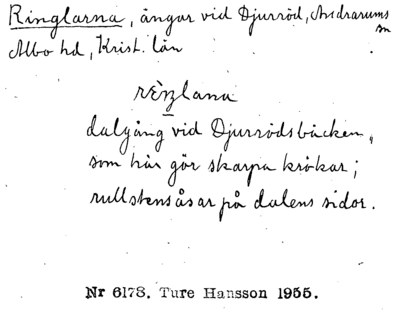 Ringlarna, ängar vid Djurröd, Andrarums sn
Albo hd, Krist. län
rèṉlana
dalgång vid Djurrödsbäcken,
som här gör skarpa krökar;
rullstensåsar på dalens sidor.
Nr 6178. Ture Hansson 1955.